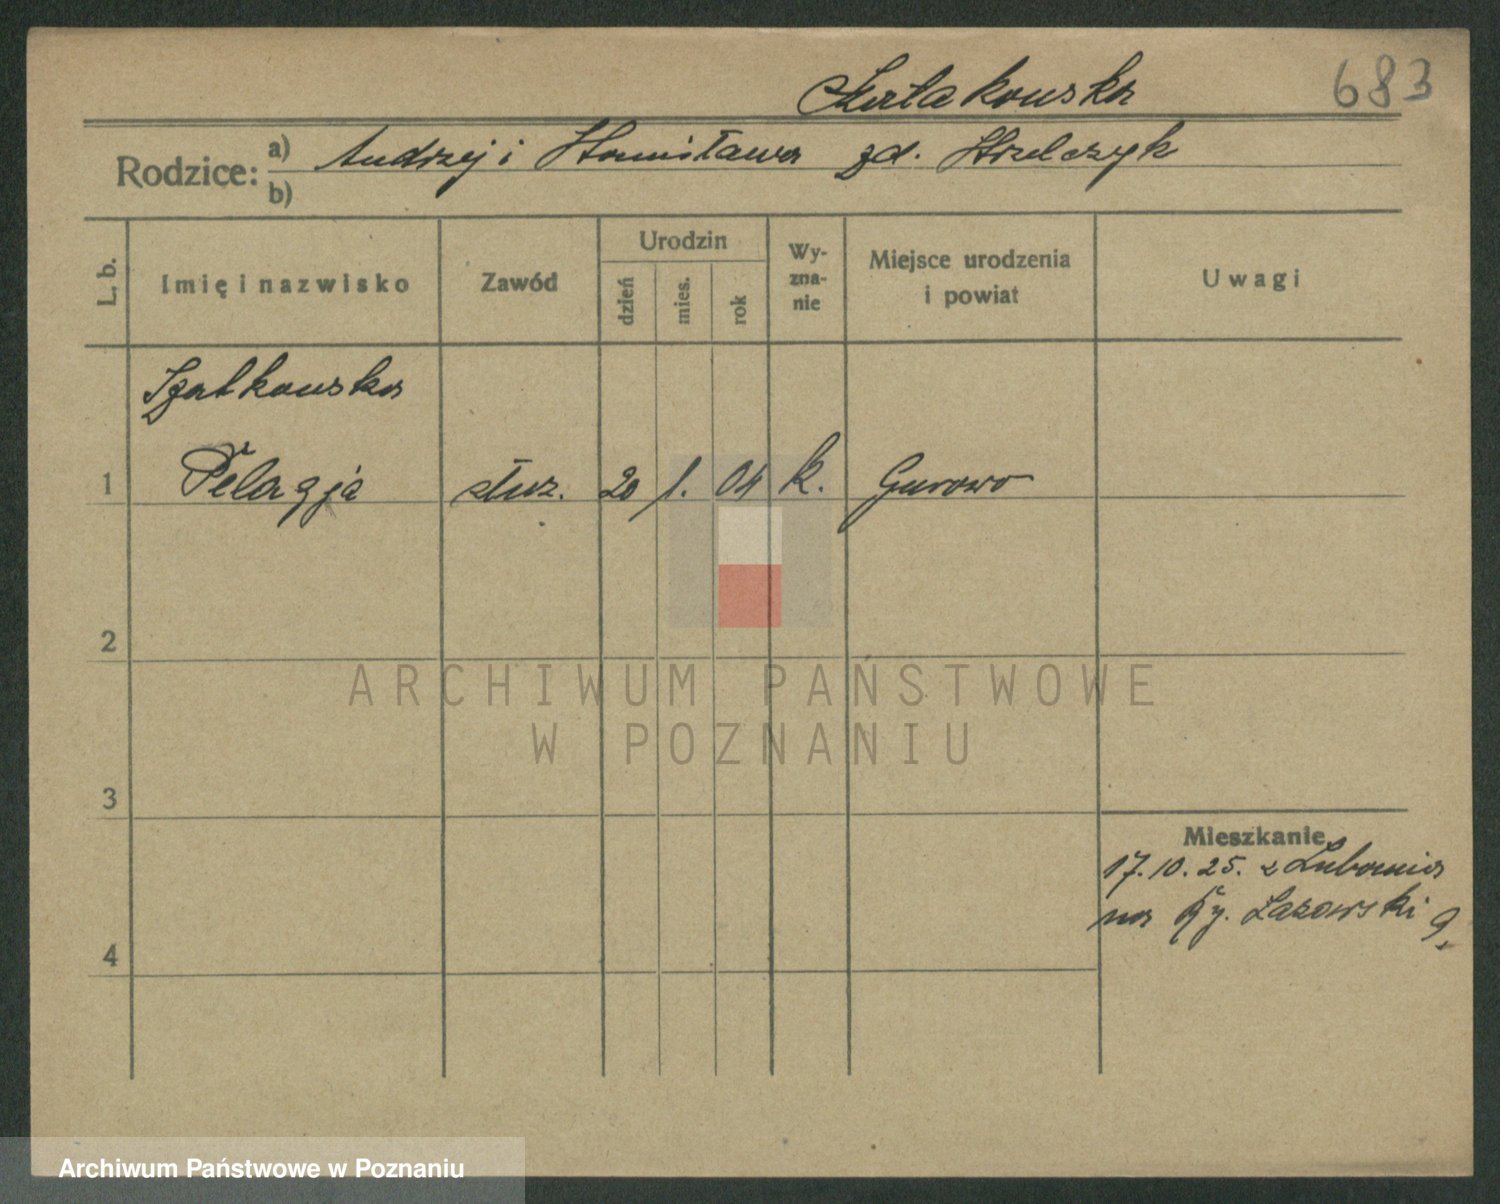 683
Rodzice: a) Andrzej i Stanisława zd. Strzelczyk
b)
L. b.
Imię i nazwisko
Zawód
Urodzin
dzień
mies.
rok
Wy-
zna-
nie
Miejsce urodzenia
i powiat
Uwagi
Szatkowska
1 Pelagja służ. 20 1. 04 k. Gurowo
2
3
4
Mieszkanie
17.10.25. z Lubonia
na Ry. Łazarski 9,
ARCHIWUM PAŃSTWOWE
W POZNANIU
Archiwum Państwowe w Poznaniu